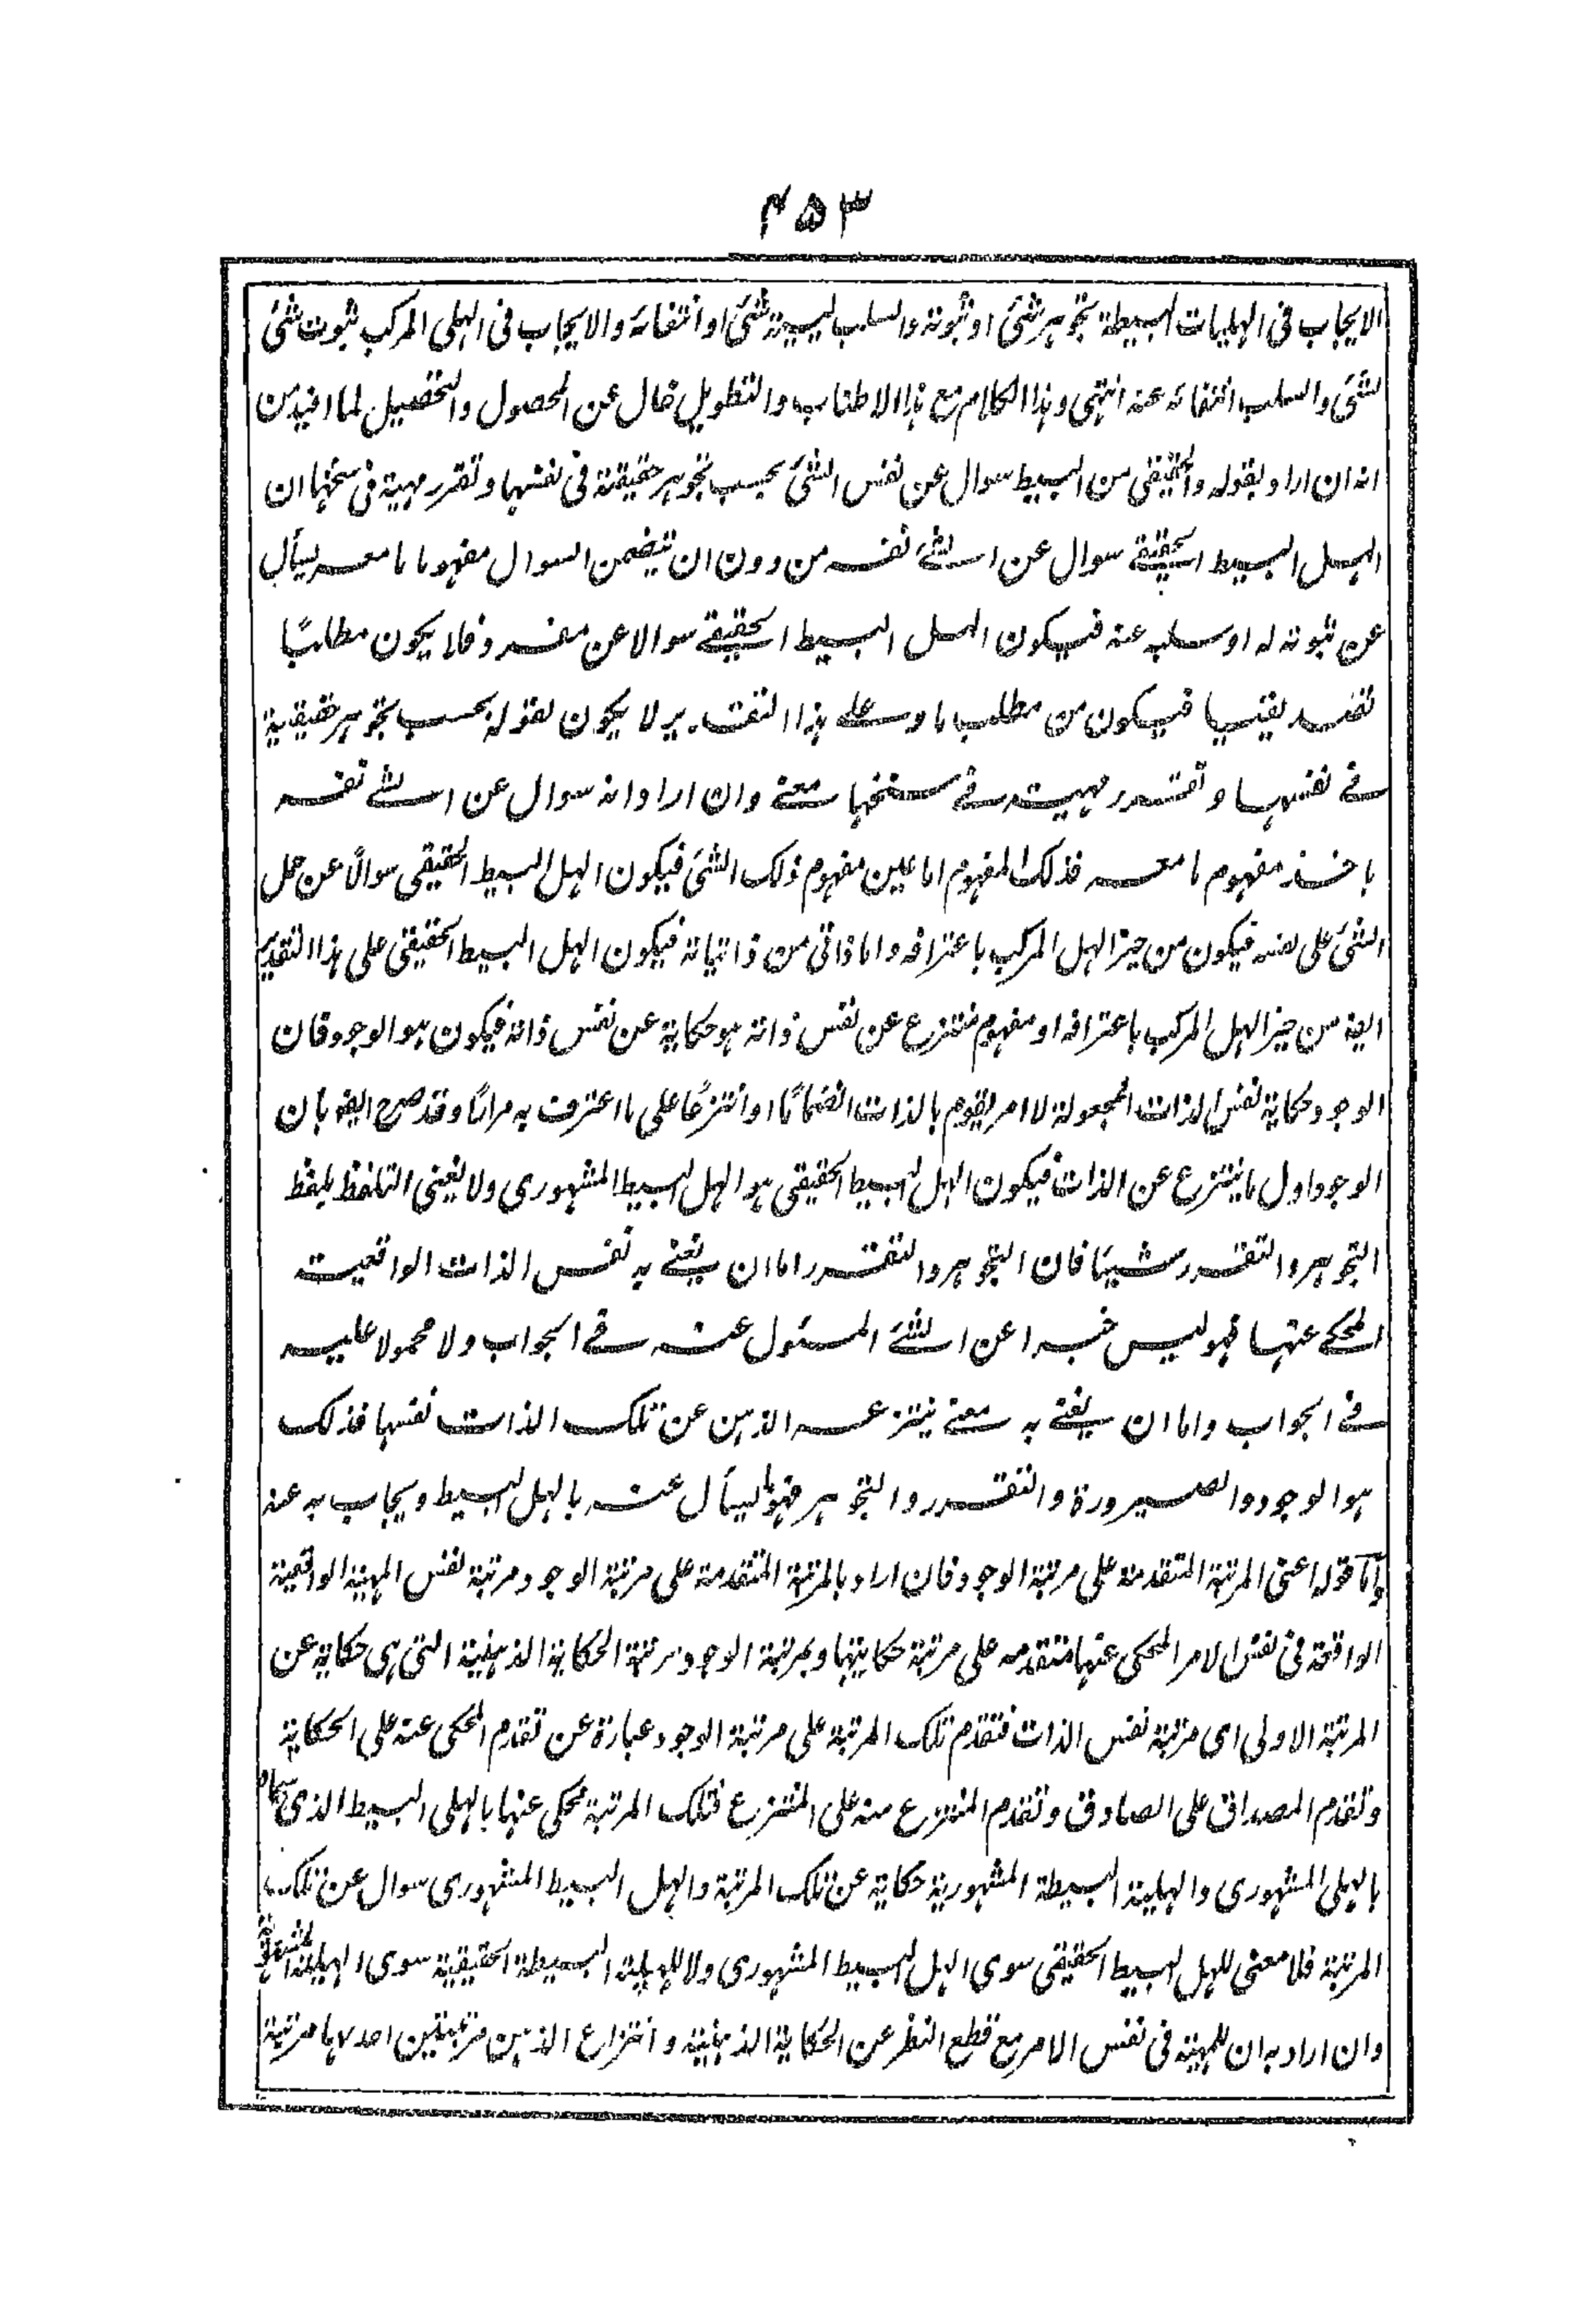 ۴۵۳
الايجاب فى الهليات البسيطة تجوهر شئ او ثبوته والسلب ليسية شئ او انتفائه والايجاب فى الهلى المركب ثبوت شئ
لشئ والسلب انتفائه عنه انتهى وهذا الكلام مع هذا الاطناب والتطويل خال عن المحصول والتحصيل لما افيد من
انه ان اراد بقوله والحقيقى من البسيط سوال عن نفس الشئ بحسب تجوهر حقيقته فى نفسها وتقرر مهيته فى سنخها ان
الهل البسيط الحقيقے سوال عن الشئے نفسه من دون ان يتضمن السوال مفهوما ما معه ليسأل
عن ثبوته له او سلبه عنه فيكون الهل البسيط الحقيقے سوالا عن مفرد فلا يكون مطلبًا
تصديقيا فيكون من مطلب ما وعلے هذا التقدير لا يكون لقوله بحسب تجوهر حقيقية
فے نفسها وتقرر مهيته فے سنخها معنے وان اراد انه سوال عن الشے نفسه
باخذ مفهوم ما معه فذلك المفهوم اما عين مفهوم ذلك الشئ فيكون الهل البسيط الحقيقى سوالًا عن حمل
الشئ على نفسه فيكون من حيز الهل المركب باعترافه واما ذاتى من ذاتياته فيكون الهل البسيط الحقيقى على هذا التقدير
ايضه من حيز الهل المركب باعترافه او مفهوم منتزع عن نفس ذاته هو حكاية عن نفس ذاته فيكون هو الوجود فان
الوجود حكاية نفس الذات المجعولة لا امر يقوم بالذات انضمامًا او انتزعًا على ما اعترف به مرارًا وقد صرح ايضه بان
الوجود اول ما ينتزع عن الذات فيكون الهل البسيط الحقيقى هو الهل البسيط المشهورى ولا يغنى التلفظ بلفظ
التجوهر والتقرر شيئا فان التجوهر والتقرر اما ان يعنے به نفس الذات الواقعية
المحكے عنها فهو ليس خبرا عن الشئے المسئول عنه فے الجواب ولا محمولا عليه
فے الجواب واما ان يعنے به معنے ينتزعه الذهن عن تلك الذات نفسها فذلك
هو الوجود والصيرورة والتقرر والتجوهر فهو ما ليسأل عنه بالهل البسيط ويجاب به عنه
واما قوله اعنى المرتبة المتقدمة على مرتبة الوجود فان اراد بالمرتبة المتقدمة على مرتبة الوجود مرتبة نفس المهية الواقعية
الواقعة فى نفس الامر المحكى عنها متقدمه على مرتبة حكايتها وبمرتبة الوجود مرتبة الحكاية الذهنية التى هى حكاية عن
المرتبة الاولى اى مرتبة نفس الذات فتقدم تلك المرتبة على مرتبة الوجود عبارة عن تقدم المحكى عنه على الحكاية
وتقدم المصداق على الصادق وتقدم المنتزع منه على المنتزع فتلك المرتبة محكى عنها بالهلى البسيط الذى سماه
بالهلى المشهورى والهلية البسيطة المشهورية حكاية عن تلك المرتبة والهل البسيط المشهورى سوال عن تلك
المرتبة فلا معنى للهل البسيط الحقيقى سوى الهل البسيط المشهورى ولا للهلية البسيطة الحقيقية سوى الهلية المشهورية
وان اراد به ان للمهية فى نفس الامر مع قطع النظر عن الحكاية الذهنية وانتزاع الذهن مرتبتين احدٰهما مرتبة